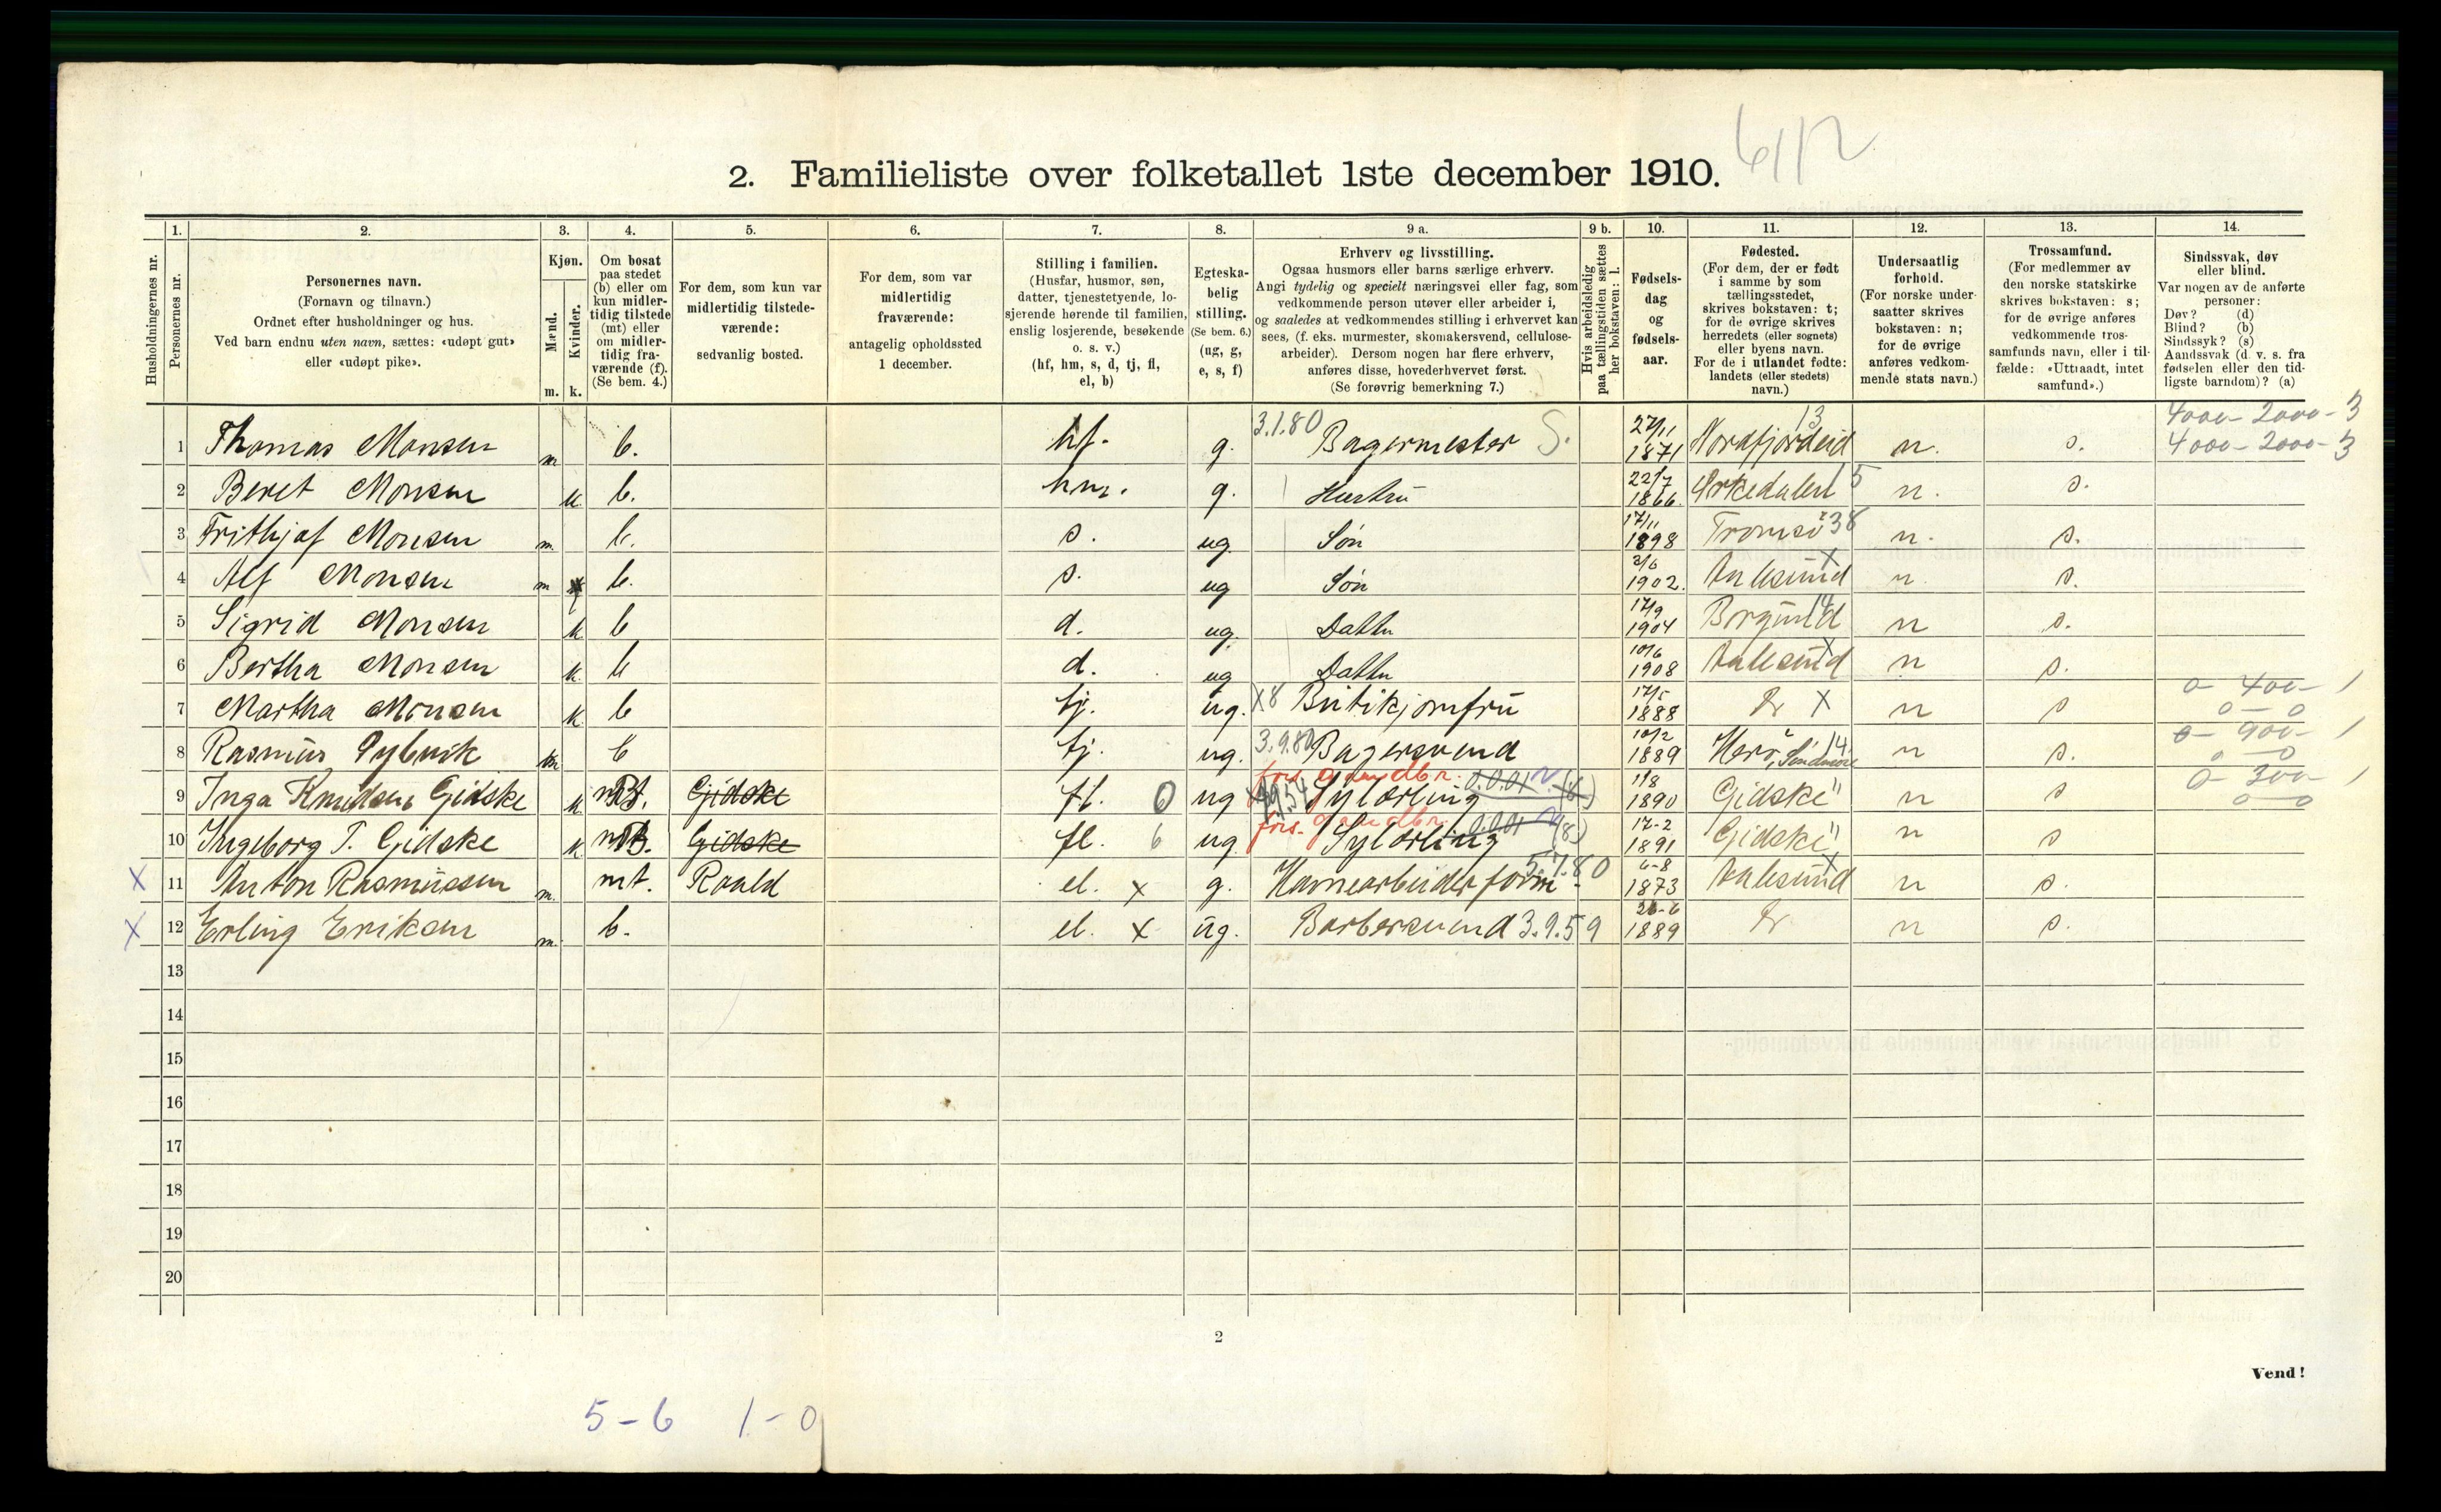 6/12
2. Familieliste over folketallet 1ste december 1910.
1. 2. 3. 4. 5. 6. 7. 8. 9 a. 9 b. 10. 11. 12. 13. 14.
Husholdningernes nr.
Personernes nr.
Personernes navn.
(Fornavn og tilnavn.)
Ordnet efter husholdninger og hus.
Ved barn endnu uten navn, sættes: «udøpt gut»
eller «udøpt pike».
Kjøn.
Mænd.
Kvinder.
m. k.
Om bosat
paa stedet
(b) eller om
kun midler-
tidig tilstede
(mt) eller
om midler-
tidig fra-
værende (f).
(Se bem. 4.)
For dem, som kun var
midlertidig tilstede-
værende:
sedvanlig bosted.
For dem, som var
midlertidig
fraværende:
antagelig opholdssted
1 december.
Stilling i familien.
(Husfar, husmor, søn,
datter, tjenestetyende, lo-
sjerende hørende til familien,
enslig losjerende, besøkende
o. s. v.)
(hf, hm, s, d, tj, fl,
el, b)
Egteska-
belig
stilling.
(Se bem. 6.)
(ug, g,
e, s, f)
Erhverv og livsstilling.
Ogsaa husmors eller barns særlige erhverv.
Angi tydelig og specielt næringsvei eller fag, som
vedkommende person utøver eller arbeider i,
og saaledes at vedkommendes stilling i erhvervet kan
sees, (f. eks. murmester, skomakersvend, cellulose-
arbeider). Dersom nogen har flere erhverv,
anføres disse, hovederhvervet først.
(Se forøvrig bemerkning 7.)
Hvis arbeidsledig
paa tællingstiden sættes
her bokstaven: l.
Fødsels-
dag
og
fødsels-
aar.
Fødested.
(For dem, der er født
i samme by som
tællingsstedet,
skrives bokstaven: t;
for de øvrige skrives
herredets (eller sognets)
eller byens navn.
For de i utlandet fødte:
landets (eller stedets)
navn.)
Undersaatlig
forhold.
(For norske under-
saatter skrives
bokstaven: n;
for de øvrige
anføres vedkom-
mende stats navn.)
Trossamfund.
(For medlemmer av
den norske statskirke
skrives bokstaven: s;
for de øvrige anføres
vedkommende tros-
samfunds navn, eller i til-
fælde: «Uttraadt, intet
samfund».)
Sindssvak, døv
eller blind.
Var nogen av de anførte
personer:
Døv? (d)
Blind? (b)
Sindssyk? (s)
Aandssvak (d. v. s. fra
fødselen eller den tid-
ligste barndom)? (a)
3.1.80 27/11 13 4000-2000-3
1 Thomas Monsen m b. hf. g. Bagermester S. 1871 Nordfjordeid n. s. 4000-2000-3
22/7
2 Beret Monsen k b. hm. g. Hustru 1866 Orkedalen 5 n. s.
17/11
3 Frithjof Monsen m. b. s. ug Søn 1898 Tromsø 38 n. s.
2/6
4 Alf Monsen m b. s. ug Søn 1902. Aalesund X n. s.
17/9
5 Sigrid Monsen k b d. ug. Datter 1904 Borgund 14 n s.
10/6
6 Bertha Monsen k b d. ug Datter 1908 Aalesund X n s.
17/5 0-400-1
7 Martha Monsen k b tj. ug. X8 Butikjomfru 1888 X n s 0-0
3.9.80 10/2 0-900-1
8 Rasmus m b tj. ug. Bagersvend 1889 Herø, Søndmøre 14 n s. 0-0
1/8 0-300-1
9 Inga Knudsen Gidske k B. Gjidske fl. 0 ug Sylærling 0.0.01 (8) 1890 Gidske " n s 0-0
17-2
10 Ingeborg T. Gjidske k B. Gidske fl. 6 ug Sylærling 0.0.01 (8) 1891 Gidske " n s
5.1.80 6-8
X 11 Anton Rasmussen m. mt. Roald el. x g. Havnearbeider form. 1873 Aalesund X n s.
21-6
X 12 Erling Eriksen m. b. el. x ug. Barbersvend 3.9.59 1889 n s.
13
14
15
16
17
18
19
20
2
Vend!
5-6 1-0